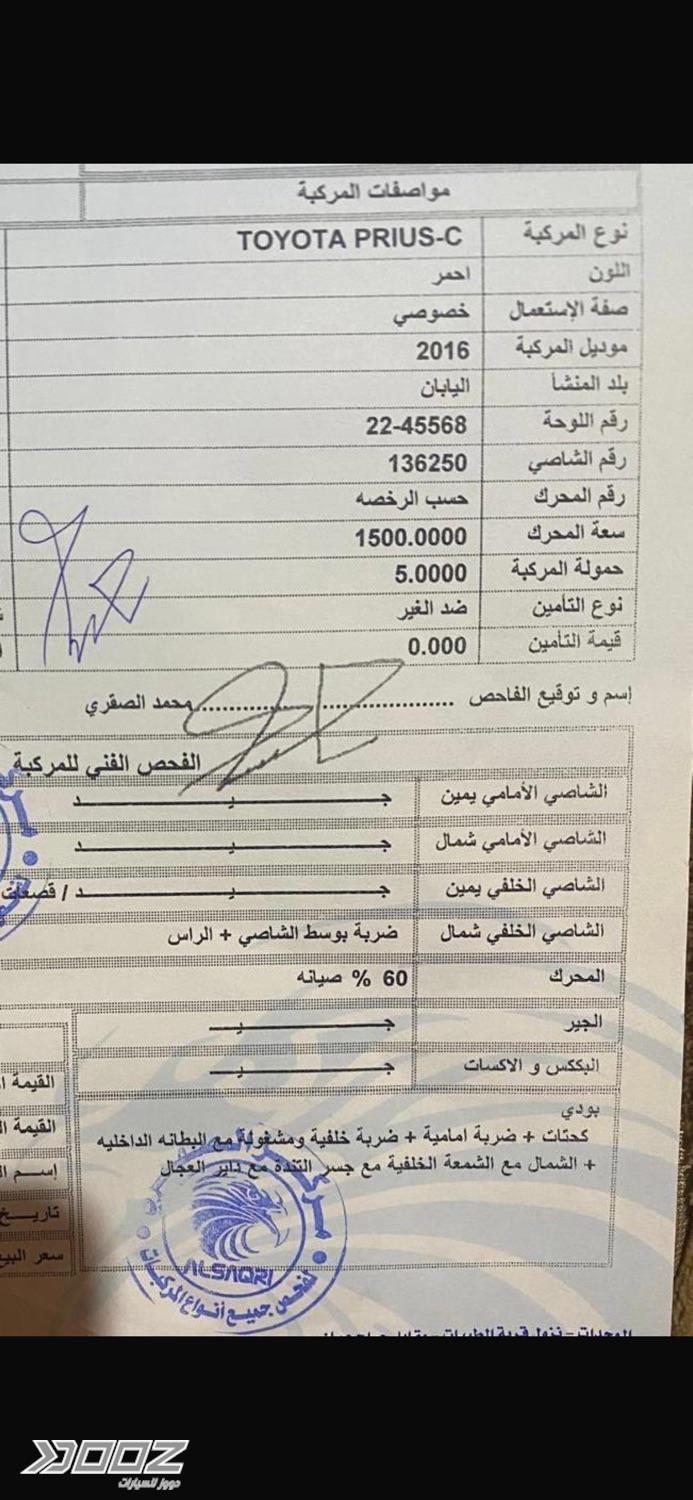 مواصفات المركبة
نوع المركبة TOYOTA PRIUS-C
اللون احمر
صفة الإستعمال خصوصي
موديل المركبة 2016
بلد المنشأ اليابان
رقم اللوحة 22-45568
رقم الشاصي 136250
رقم المحرك حسب الرخصه
سعة المحرك 1500.0000
حمولة المركبة 5.0000
نوع التأمين ضد الغير
قيمة التأمين 0.000
إسم و توقيع الفاحص .......................... محمد الصقري
الفحص الفني للمركبة
الشاصي الأمامي يمين جـــيـــد
الشاصي الأمامي شمال جـــيـــد
الشاصي الخلفي يمين جـــيـــد / قصعات
الشاصي الخلفي شمال ضربة بوسط الشاصي + الراس
المحرك 60 % صيانه
الجير جـــيـــد
البككس و الاكسات جـــيـــد
بودي
كحتات + ضربة امامية + ضربة خلفية ومشغولة مع البطانه الداخليه
+ الشمال مع الشمعة الخلفية مع جسر التندة مع داير العجال
القيمة
القيمة
إسم
تاريـــخ
سعر البيع
ALSAQRI
لفحص جميع انواع المركبات
DOOZ
دووز للسيارات